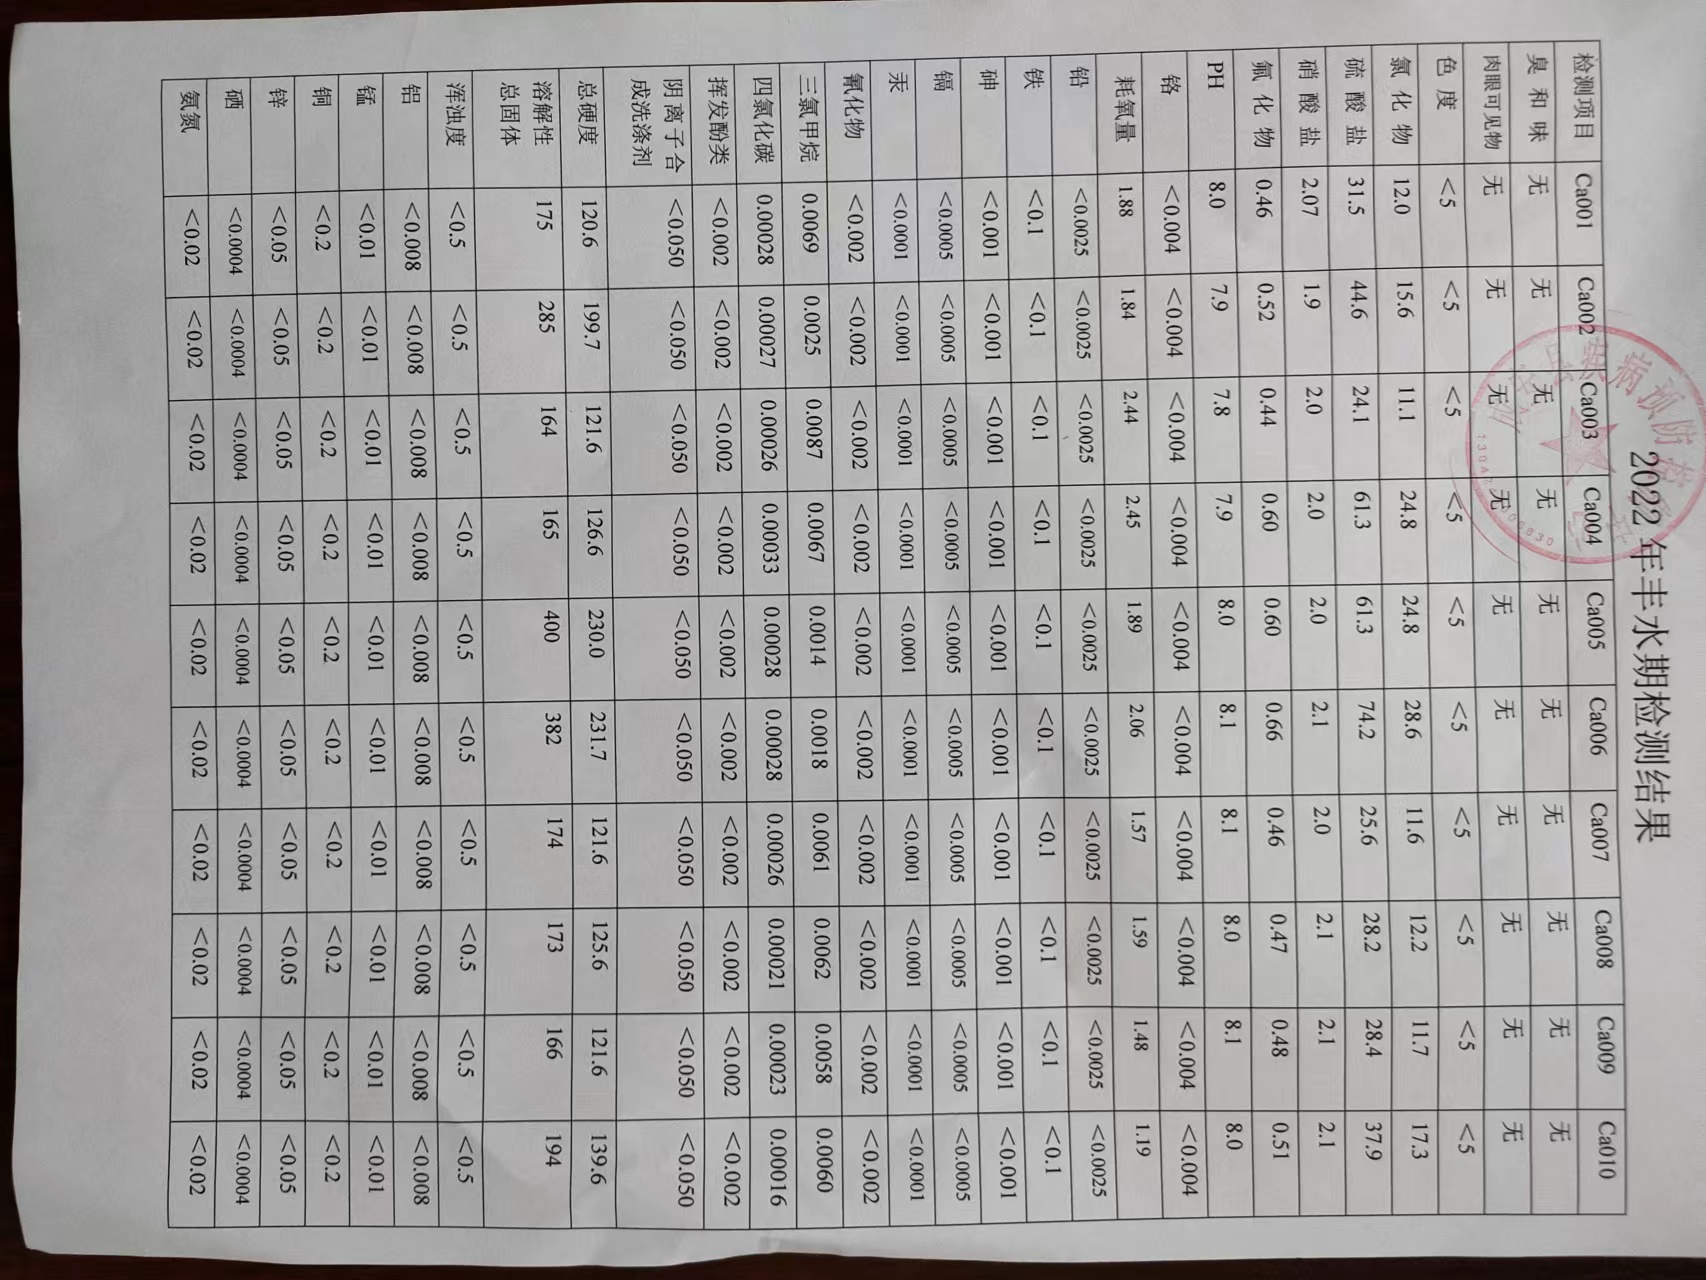 2022年丰水期检测结果
检测项目 Ca001 Ca002 Ca003 Ca004 Ca005 Ca006 Ca007 Ca008 Ca009 Ca010
臭和味 无 无 无 无 无 无 无 无 无 无
肉眼可见物 无 无 无 无 无 无 无 无 无 无
色度 <5 <5 <5 <5 <5 <5 <5 <5 <5 <5
氯化物 12.0 15.6 11.1 24.8 24.8 28.6 11.6 12.2 11.7 17.3
硫酸盐 31.5 44.6 24.1 61.3 61.3 74.2 25.6 28.2 28.4 37.9
硝酸盐 2.07 1.9 2.0 2.0 2.0 2.1 2.0 2.1 2.1 2.1
氟化物 0.46 0.52 0.44 0.60 0.60 0.66 0.46 0.47 0.48 0.51
PH 8.0 7.9 7.8 7.9 8.0 8.1 8.1 8.0 8.1 8.0
铬 <0.004 <0.004 <0.004 <0.004 <0.004 <0.004 <0.004 <0.004 <0.004 <0.004
耗氧量 1.88 1.84 2.44 2.45 1.89 2.06 1.57 1.59 1.48 1.19
铅 <0.0025 <0.0025 <0.0025 <0.0025 <0.0025 <0.0025 <0.0025 <0.0025 <0.0025 <0.0025
铁 <0.1 <0.1 <0.1 <0.1 <0.1 <0.1 <0.1 <0.1 <0.1 <0.1
砷 <0.001 <0.001 <0.001 <0.001 <0.001 <0.001 <0.001 <0.001 <0.001 <0.001
镉 <0.0005 <0.0005 <0.0005 <0.0005 <0.0005 <0.0005 <0.0005 <0.0005 <0.0005 <0.0005
汞 <0.0001 <0.0001 <0.0001 <0.0001 <0.0001 <0.0001 <0.0001 <0.0001 <0.0001 <0.0001
氰化物 <0.002 <0.002 <0.002 <0.002 <0.002 <0.002 <0.002 <0.002 <0.002 <0.002
三氯甲烷 0.0069 0.0025 0.0087 0.0067 0.0014 0.0018 0.0061 0.0062 0.0058 0.0060
四氯化碳 0.00028 0.00027 0.00026 0.00033 0.00028 0.00028 0.00026 0.00021 0.00023 0.00016
挥发酚类 <0.002 <0.002 <0.002 <0.002 <0.002 <0.002 <0.002 <0.002 <0.002 <0.002
阴离子合
成洗涤剂 <0.050 <0.050 <0.050 <0.050 <0.050 <0.050 <0.050 <0.050 <0.050 <0.050
总硬度 120.6 199.7 121.6 126.6 230.0 231.7 121.6 125.6 121.6 139.6
溶解性
总固体 175 285 164 165 400 382 174 173 166 194
浑浊度 <0.5 <0.5 <0.5 <0.5 <0.5 <0.5 <0.5 <0.5 <0.5 <0.5
铝 <0.008 <0.008 <0.008 <0.008 <0.008 <0.008 <0.008 <0.008 <0.008 <0.008
锰 <0.01 <0.01 <0.01 <0.01 <0.01 <0.01 <0.01 <0.01 <0.01 <0.01
铜 <0.2 <0.2 <0.2 <0.2 <0.2 <0.2 <0.2 <0.2 <0.2 <0.2
锌 <0.05 <0.05 <0.05 <0.05 <0.05 <0.05 <0.05 <0.05 <0.05 <0.05
硒 <0.0004 <0.0004 <0.0004 <0.0004 <0.0004 <0.0004 <0.0004 <0.0004 <0.0004 <0.0004
氨氮 <0.02 <0.02 <0.02 <0.02 <0.02 <0.02 <0.02 <0.02 <0.02 <0.02
县疾病预防控制中心